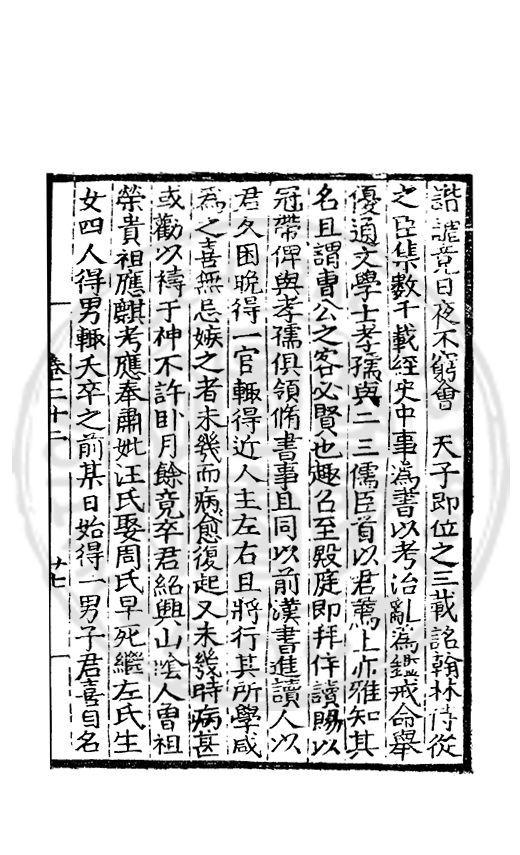 諧謔竟日夜不窮會　天子即位之三載詺翰林侍從
之臣集數千載經史中事為書以考治亂為鑑戒命舉
優通文學士孝孺與二三儒臣首以君薦上亦雅知其
名且謂曹公之客必賢也趣召至殿庭即拜侍讀賜以
冠帶俾與孝孺俱領脩書事且同以前漢書進讀人以
君久困晚得一官輙得近人主左右且將行其所學咸
為之喜無忌嫉之者未幾而病愈復起又未幾時病甚
或勸以禱于神不許卧月餘竟卒君紹興山隂人曾祖
榮貴祖應麒考應奉肅妣汪氏娶周氏早死繼左氏生
女四人得男輙夭卒之前某日始得一男子君喜自名
卷二十二
廿七